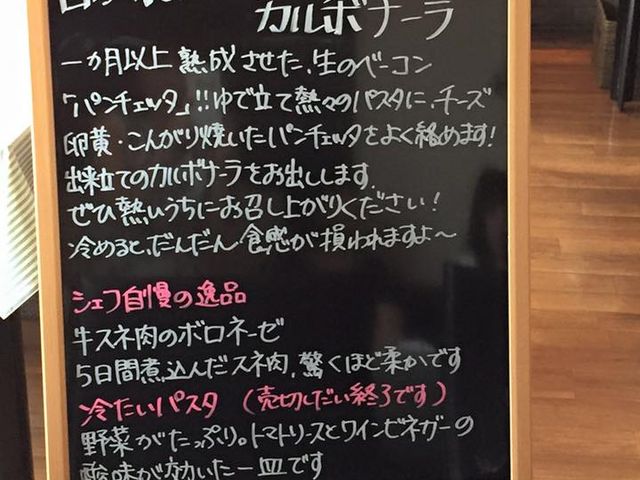 カルボナーラ
一カ月以上熟成させた、生のベーコン
「パンチェッタ」!!ゆで立て熱々のパスタに、チーズ
卵黄・こんがり焼いたパンチェッタをよく絡めます!
出来立てのカルボナーラをお出しします。
ぜひ熱いうちにお召し上がりください!
冷めると、だんだん食感が損われますよ〜
シェフ自慢の逸品
牛スネ肉のボロネーゼ
5日間煮込んだスネ肉、驚くほど柔かです
冷たいパスタ (売切しだい終了です)
野菜がたっぷり。トマトソースとワインビネガーの
酸味が効いた一皿です